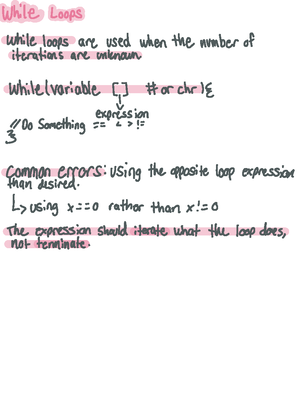 While Loops
While loops are used when the number of
iterations are unknown
While(variable [] # or chr){
expression
//Do Something == < > !=
}
Common errors: using the opposite loop expression
than desired.
↳ using x==0 rather than x!=0
The expression should iterate what the loop does,
not terminate.